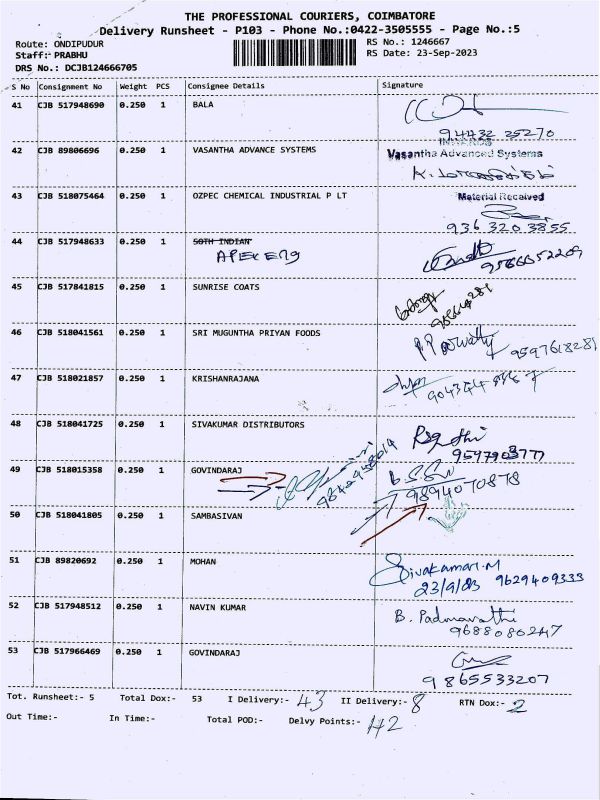 THE PROFESSIONAL COURIERS, COIMBATORE
Delivery Runsheet - P103 - Phone No.:0422-3505555 - Page No.:5
Route: ONDIPUDUR
Staff: PRABHU
DRS No.: DCJB124666705
RS No.: 1246667
RS Date: 23-Sep-2023
S No Consignment No Weight PCS Consignee Details Signature
41 CJB 517948690 0.250 1 BALA
94432 25270
42 CJB 89806696 0.250 1 VASANTHA ADVANCE SYSTEMS
Vasantha Advanced Systems
43 CJB 518075464 0.250 1 OZPEC CHEMICAL INDUSTRIAL P LT
Material Received
936 320 3855
44 CJB 517948633 0.250 1 SOTH INDIAN
45 CJB 517841815 0.250 1 SUNRISE COATS
46 CJB 518041561 0.250 1 SRI MUGUNTHA PRIYAN FOODS
9597618281
47 CJB 518021857 0.250 1 KRISHNARAJANA
48 CJB 518041725 0.250 1 SIVAKUMAR DISTRIBUTORS
49 CJB 518015358 0.250 1 GOVINDARAJ
9894070878
50 CJB 518041805 0.250 1 SAMBASIVAN
51 CJB 89820692 0.250 1 MOHAN
Sivakamari.M
23/9/23 9629409333
52 CJB 517948512 0.250 1 NAVIN KUMAR
B. Padmavathi
9688080247
53 CJB 517966469 0.250 1 GOVINDARAJ
9865533207
Tot. Runsheet:- 5 Total Dox:- 53 I Delivery:- 43 II Delivery:- 8 RTN Dox:- 2
Out Time:- In Time:- Total POD:- Delvy Points:- 42